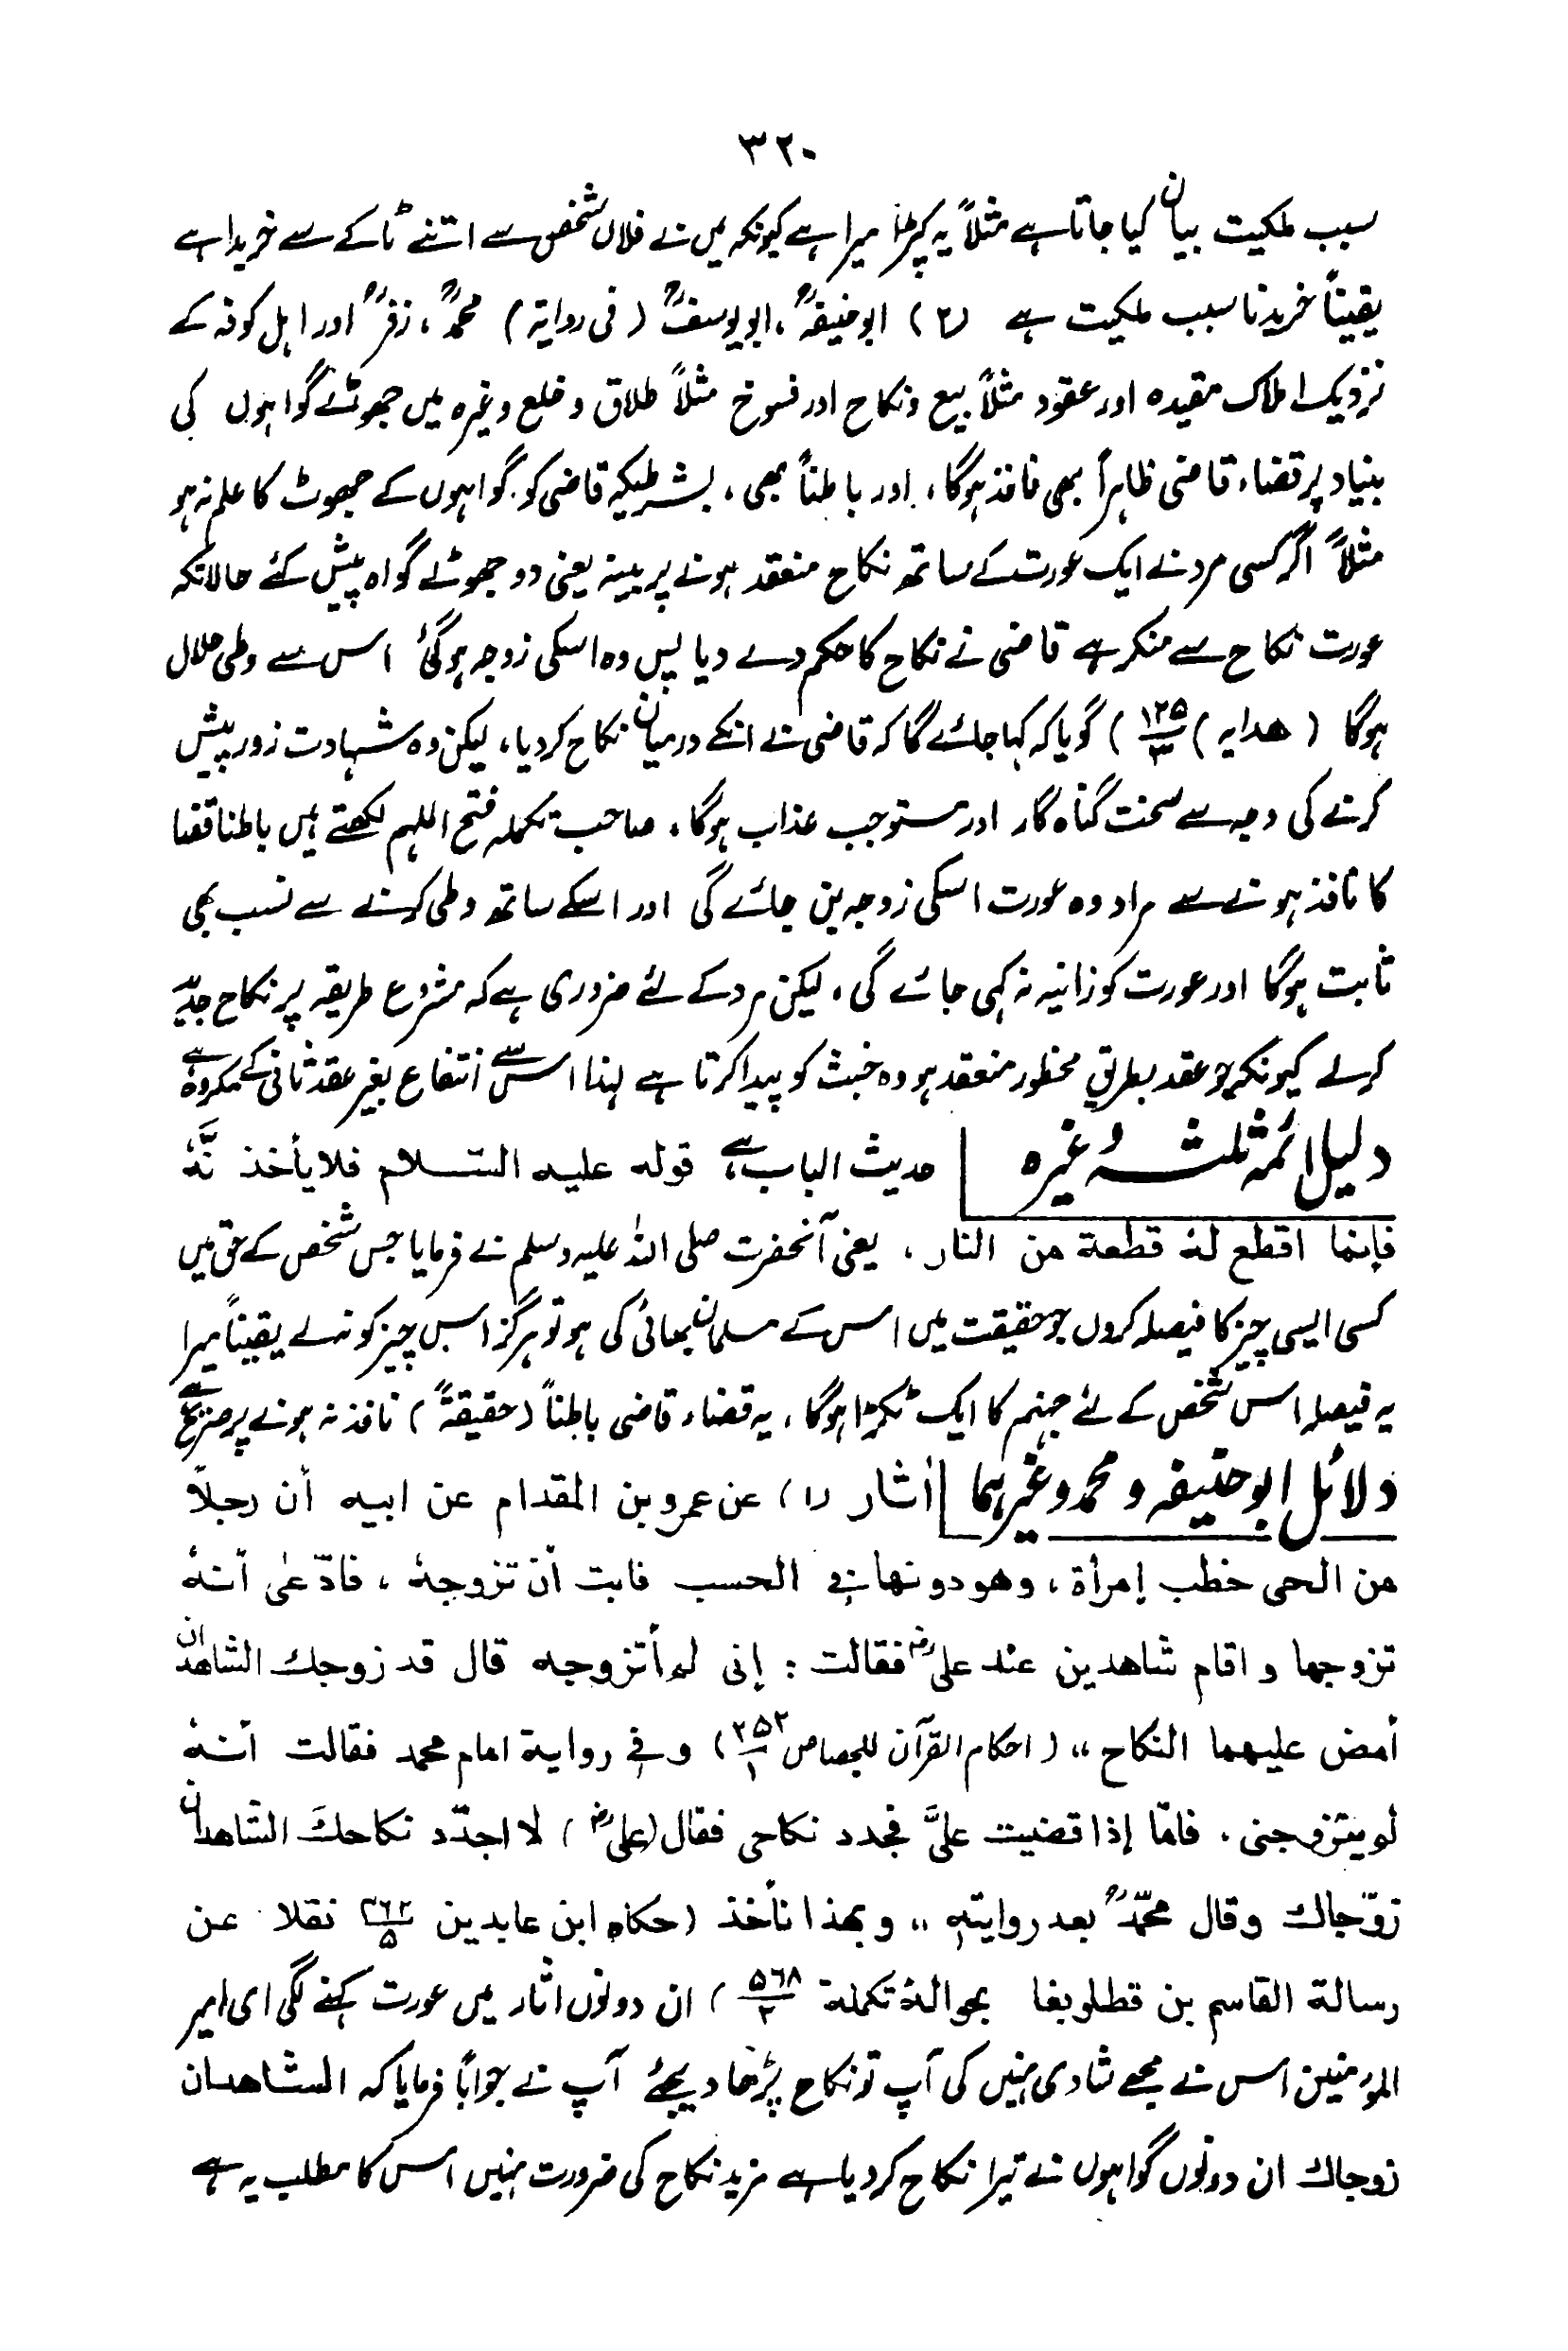 ۳۲۰
سبب ملکیت بیان کیا جاتا ہے مثلاً یہ کپڑا میرا ہے کیونکہ میں نے فلاں شخص سے اتنے ٹاکے سے خریدا ہے
یقیناً خریدنا سبب ملکیت ہے (۲) ابوحنیفہؒ، ابویوسفؒ (فی روایۃ) محمدؒ، زفرؒ اور اہل کوفہ کے
نزدیک املاک مقیدہ اور عقود مثلاً بیع ونکاح اور فسوخ مثلاً طلاق و خلع وغیرہ میں جھوٹے گواہوں کی
بنیاد پر قضاء قاضی ظاہراً بھی نافذ ہوگا، اور باطناً بھی، بشرطیکہ قاضی کو گواہوں کے جھوٹ کا علم نہ ہو
مثلاً اگر کسی مرد نے ایک عورت کے ساتھ نکاح منعقد ہونے پر بینہ یعنی دو جھوٹے گواہ پیش کئے حالانکہ
عورت نکاح سے منکر ہے قاضی نے نکاح کا حکم دے دیا پس وہ اسکی زوجہ ہوگئی اس سے وطی حلال
ہوگا (ھدایہ) ۱۲۵/۳) گویا کہ کہا جائے گا کہ قاضی نے انکے درمیان نکاح کردیا، لیکن وہ شہادت زور پیش
کرنے کی وجہ سے سخت گناہ گار اور مستوجب عذاب ہوگا۔ صاحب تکملہ فتح الملہم لکھتے ہیں باطنا قضا
کا نافذ ہونے سے مراد وہ عورت اسکی زوجہ بن جائے گی اور اسکے ساتھ وطی کرنے سے نسب بھی
ثابت ہوگا اور عورت کو زانیہ نہ کہی جائے گی، لیکن مرد کے لئے ضروری ہے کہ مشروع طریقہ پر نکاح جدید
کرلے کیونکہ جو عقد بطریق محظور منعقد ہو وہ خبث کو پیدا کرتا ہے لہذا اس سے انتفاع بغیر عقد ثانی کے مکروہ ہے
دلیل ائمہ ثلثہ وغیرہ | حدیث الباب ہے، قولہ علیہ السّلام فلا یأخذ نَّہٗ
فإنما اقطع لہٗ قطعۃ من النار، یعنی آنحضرت صلی اللہ علیہ وسلم نے فرمایا جس شخص کے حق میں
کسی ایسی چیز کا فیصلہ کروں جو حقیقت میں اس کے مسلمان بھائی کی ہو تو ہرگز اس چیز کو نہ لے یقیناً میرا
یہ فیصلہ اس شخص کے لئے جہنم کا ایک ٹکڑا ہوگا، یہ قضاء قاضی باطناً (حقیقۃً) نافذ نہ ہونے پر صریح ہے
دلائل ابوحنیفہ و محمد وغیرہما | أثار (۱) عن عمرو بن المقدام عن ابیہ أن رجلاً
من الحی خطب إمرأۃ، وھو دونھا فی الحسب فابت أن تزوجہٗ، فادّعٰی أنہٗ
تزوجھا و اقام شاھدین عند علیؓ فقالت : إنی لم أتزوجہ قال قد زوجك الشاھدان
أمض علیھما النکاح ،، (احکام القرآن للجصاص ۲۵۲/۱) و فی روایۃ امام محمد فقالت أنہٗ
لم یتزوجنی، فامّا إذا قضیت علیَّ فجدد نکاحی فقال (علیؓ) لا اجدّد نکاحكَ الشّاھدان
زوّجاك وقال محمّدؒ بعد روایتہٖ ،، وبھذا نأخذ (حکاہ ابن عابدین ۴۶۲/۵ نقلا عن
رسالۃ القاسم بن قطلوبغا بحوالۂ تکملۃ ۵۶۸/۲) ان دونوں اثار میں عورت کہنے لگی ای امیر
المؤمنین اس نے مجھے شادی نہیں کی آپ تو نکاح پڑھا دیجئے آپ نے جواباً فرمایا کہ الشاھدان
زوجاك ان دونوں گواہوں نے تیرا نکاح کردیا ہے مزید نکاح کی ضرورت نہیں اس کا مطلب یہ ہے